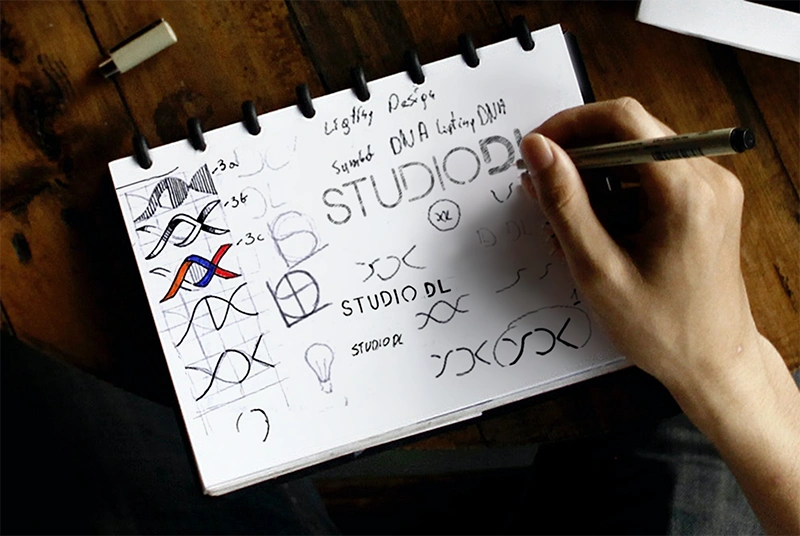 Ligting Design
Symbol DNA Ligting DNA
3a
STUDIO DL
3b
3c
STUDIO DL
STUDIO DL